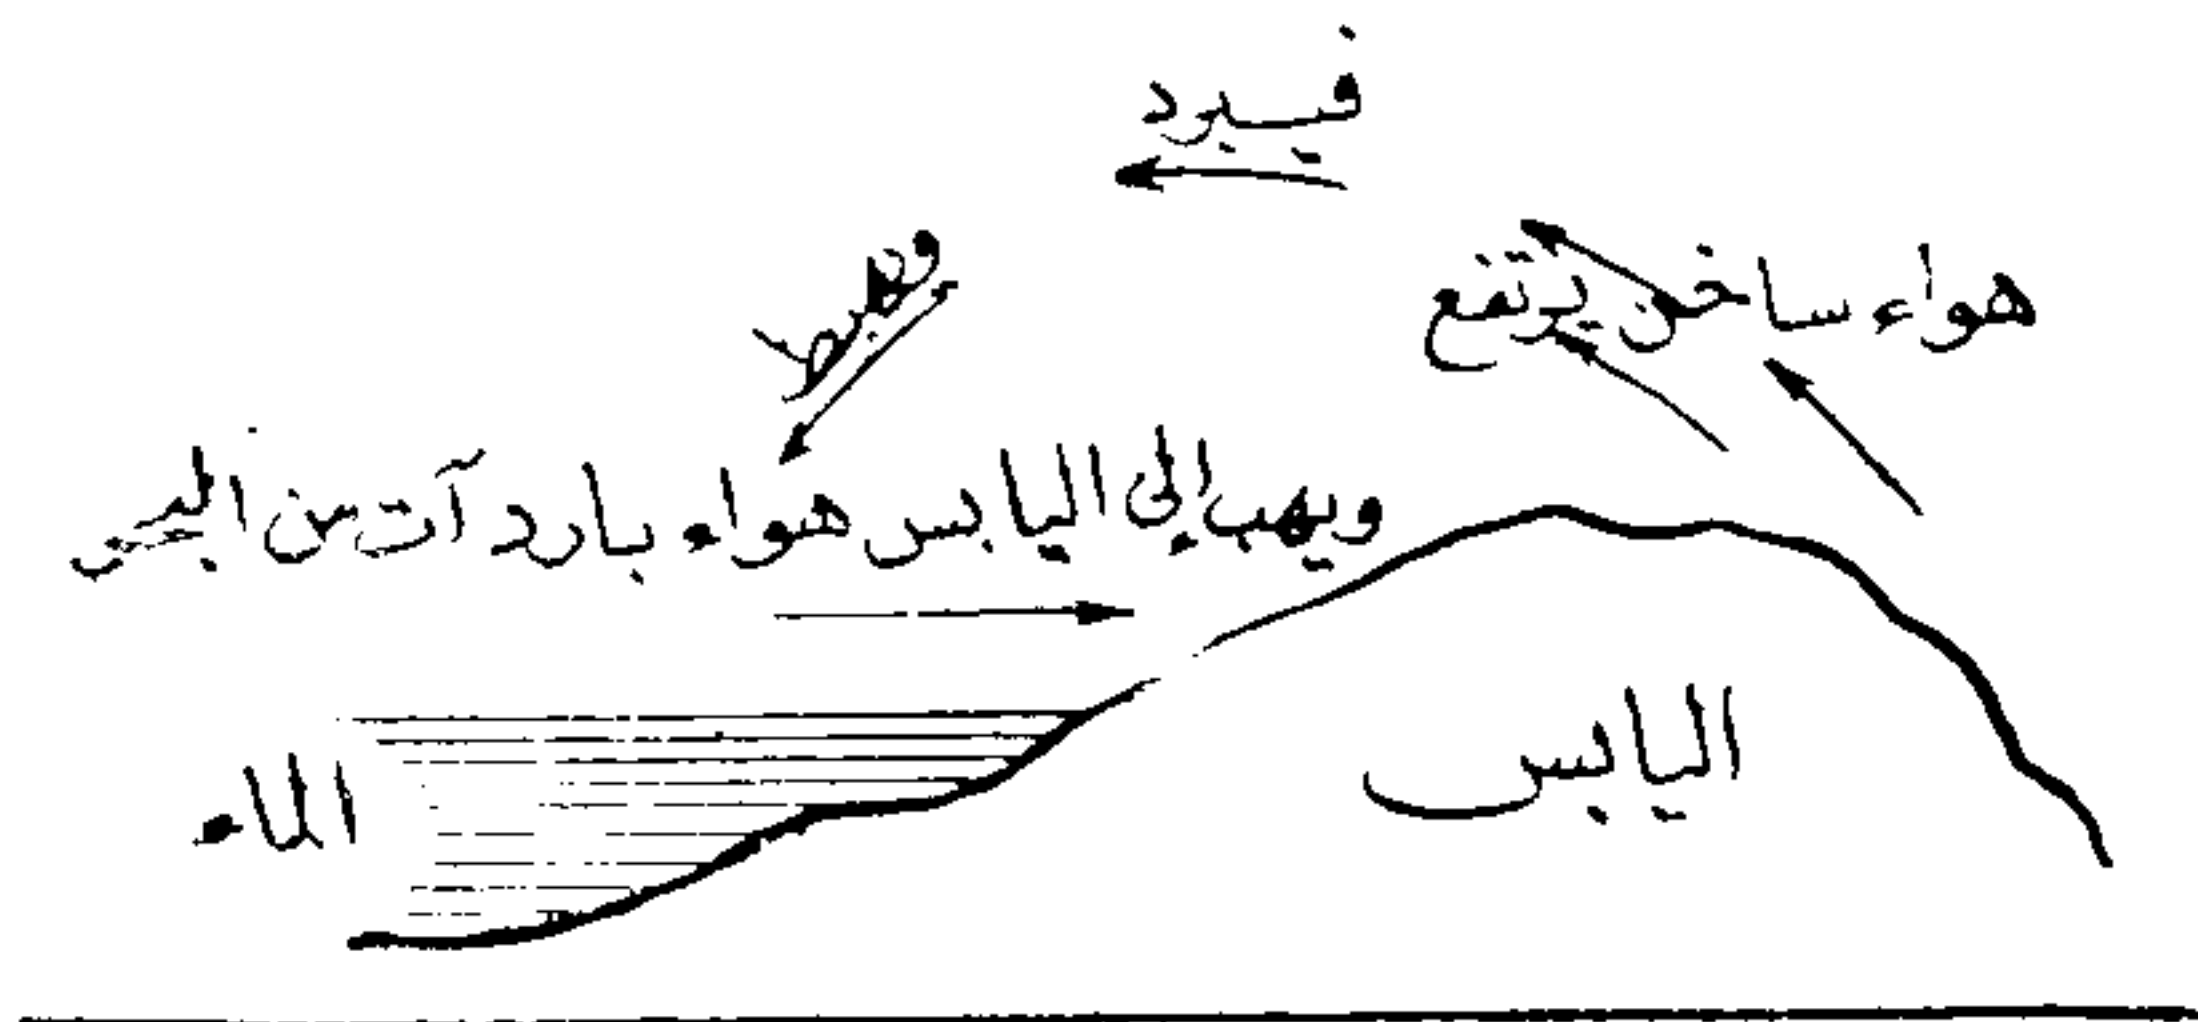 فيبرد
هواء ساخن يرتفع
ويهبط
ويهب إلى اليابس هواء بارد آت من البحر
اليابس
الماء